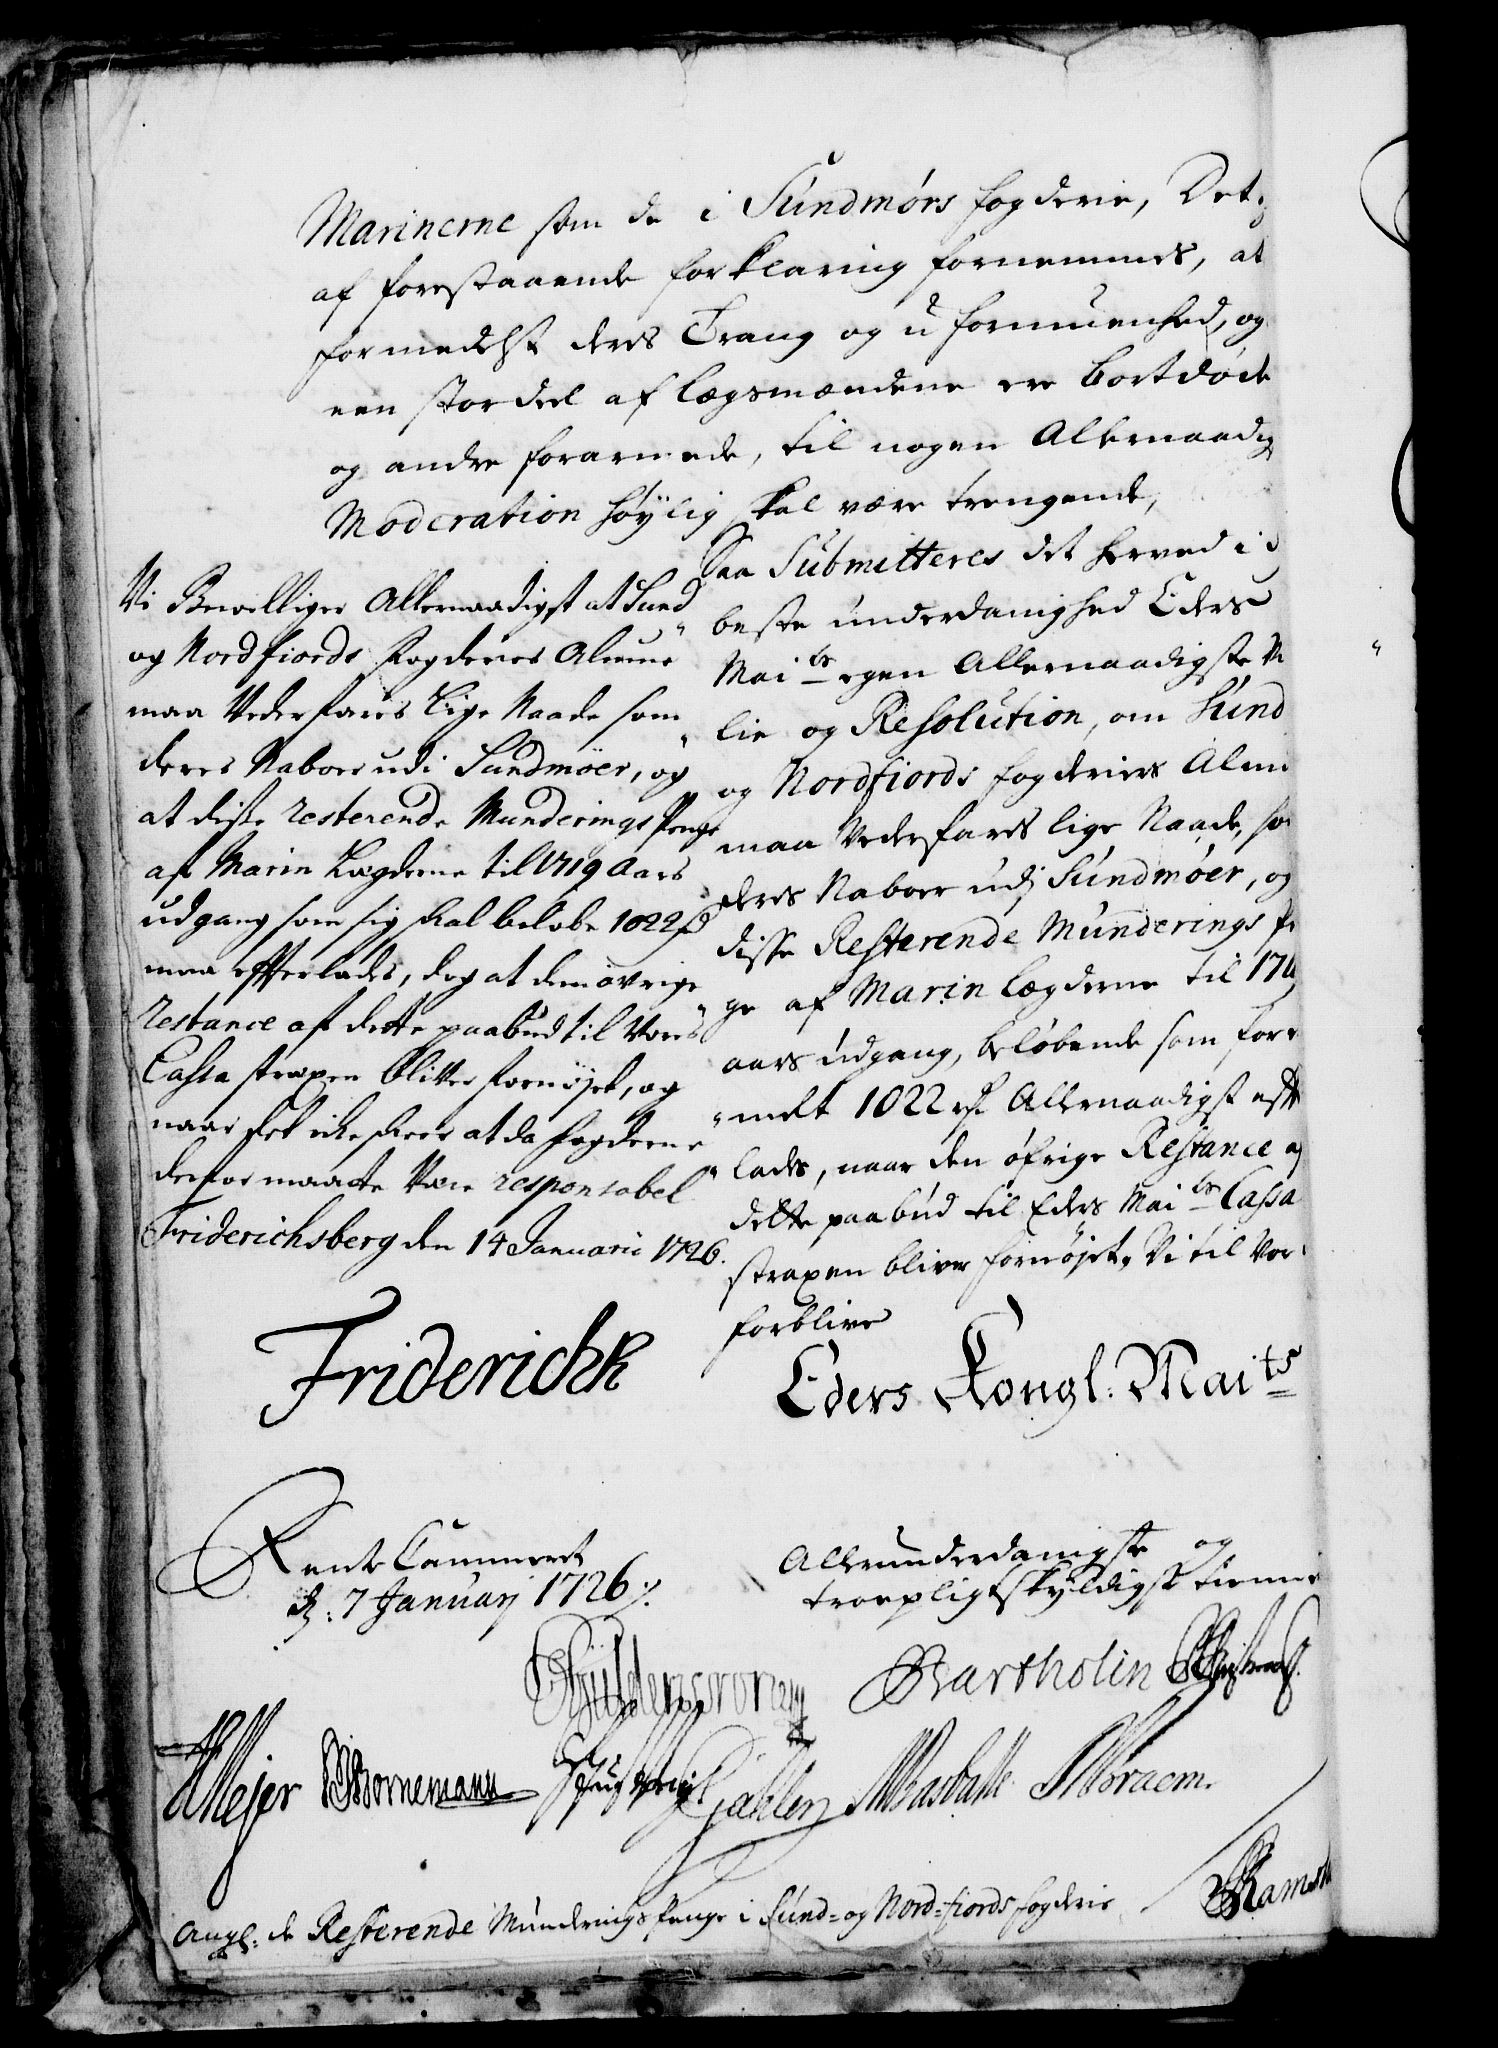 Marinerne som de i Sundmørs fogderie, Det
af forestaaende forklaring fornemmes, at
formedelst deres Trang og uformuenhed, og
een stor deel af lægsmændene ere bortdøde
og andre forarmede, til nogen Allernaadig
Moderation høylig skal være trengende,
Saa Submitteres det herved i
beste underdanighed Eders
Mai ts egen Allernaadigste Vi
lie og Resolution, om Sund
og Nordfiords fogderiers Almu
maa Vederfares lige Naade, so
deres Naboer udj Sundmøer, og
disse Resterende Munderings Pe
ge af Marin lægderne til 1719
aars udgang, beløbende som for
melt 1022 rd Allernaadigst efter
lades, naar den øfrige Restance af
dette paabud til Eders Mai ts Cassa
strapen bliver fornøjet, Vi til Vor
forblive
Eders Kongl: Mai ts
Vi Bevilliger Allernaadigst at Sund
og Nordfiords Fogderies Almue
maa Vederfares Lige Naade som
deres Naboer udi Sundmöer, og
at diße resterende Munderings Penge
af Marin Lægderne til 1719 Aars
udgang som sig skal beløbe 1022 rd
maa effterlades, dog at den øvrige
restance af dette paabud til Vores
Cassa strapen blifver fornøjet, og
naar det icke skeer at da fogderne
derfor maatte Være responsabel
Friderichsberg den 14 Januarii 1726.
Friderich R
Rente Cammeret
d: 7 Januarj 1726 ./.
Allerunderdanigste og
troepligtskyldigste tiennere
Güldencrone
Bartholin
HMejer Bornemann
Gähler
Ramshart
Angl: de Resterende Munderings Penge i Sund= og Nord=fiords fogderie